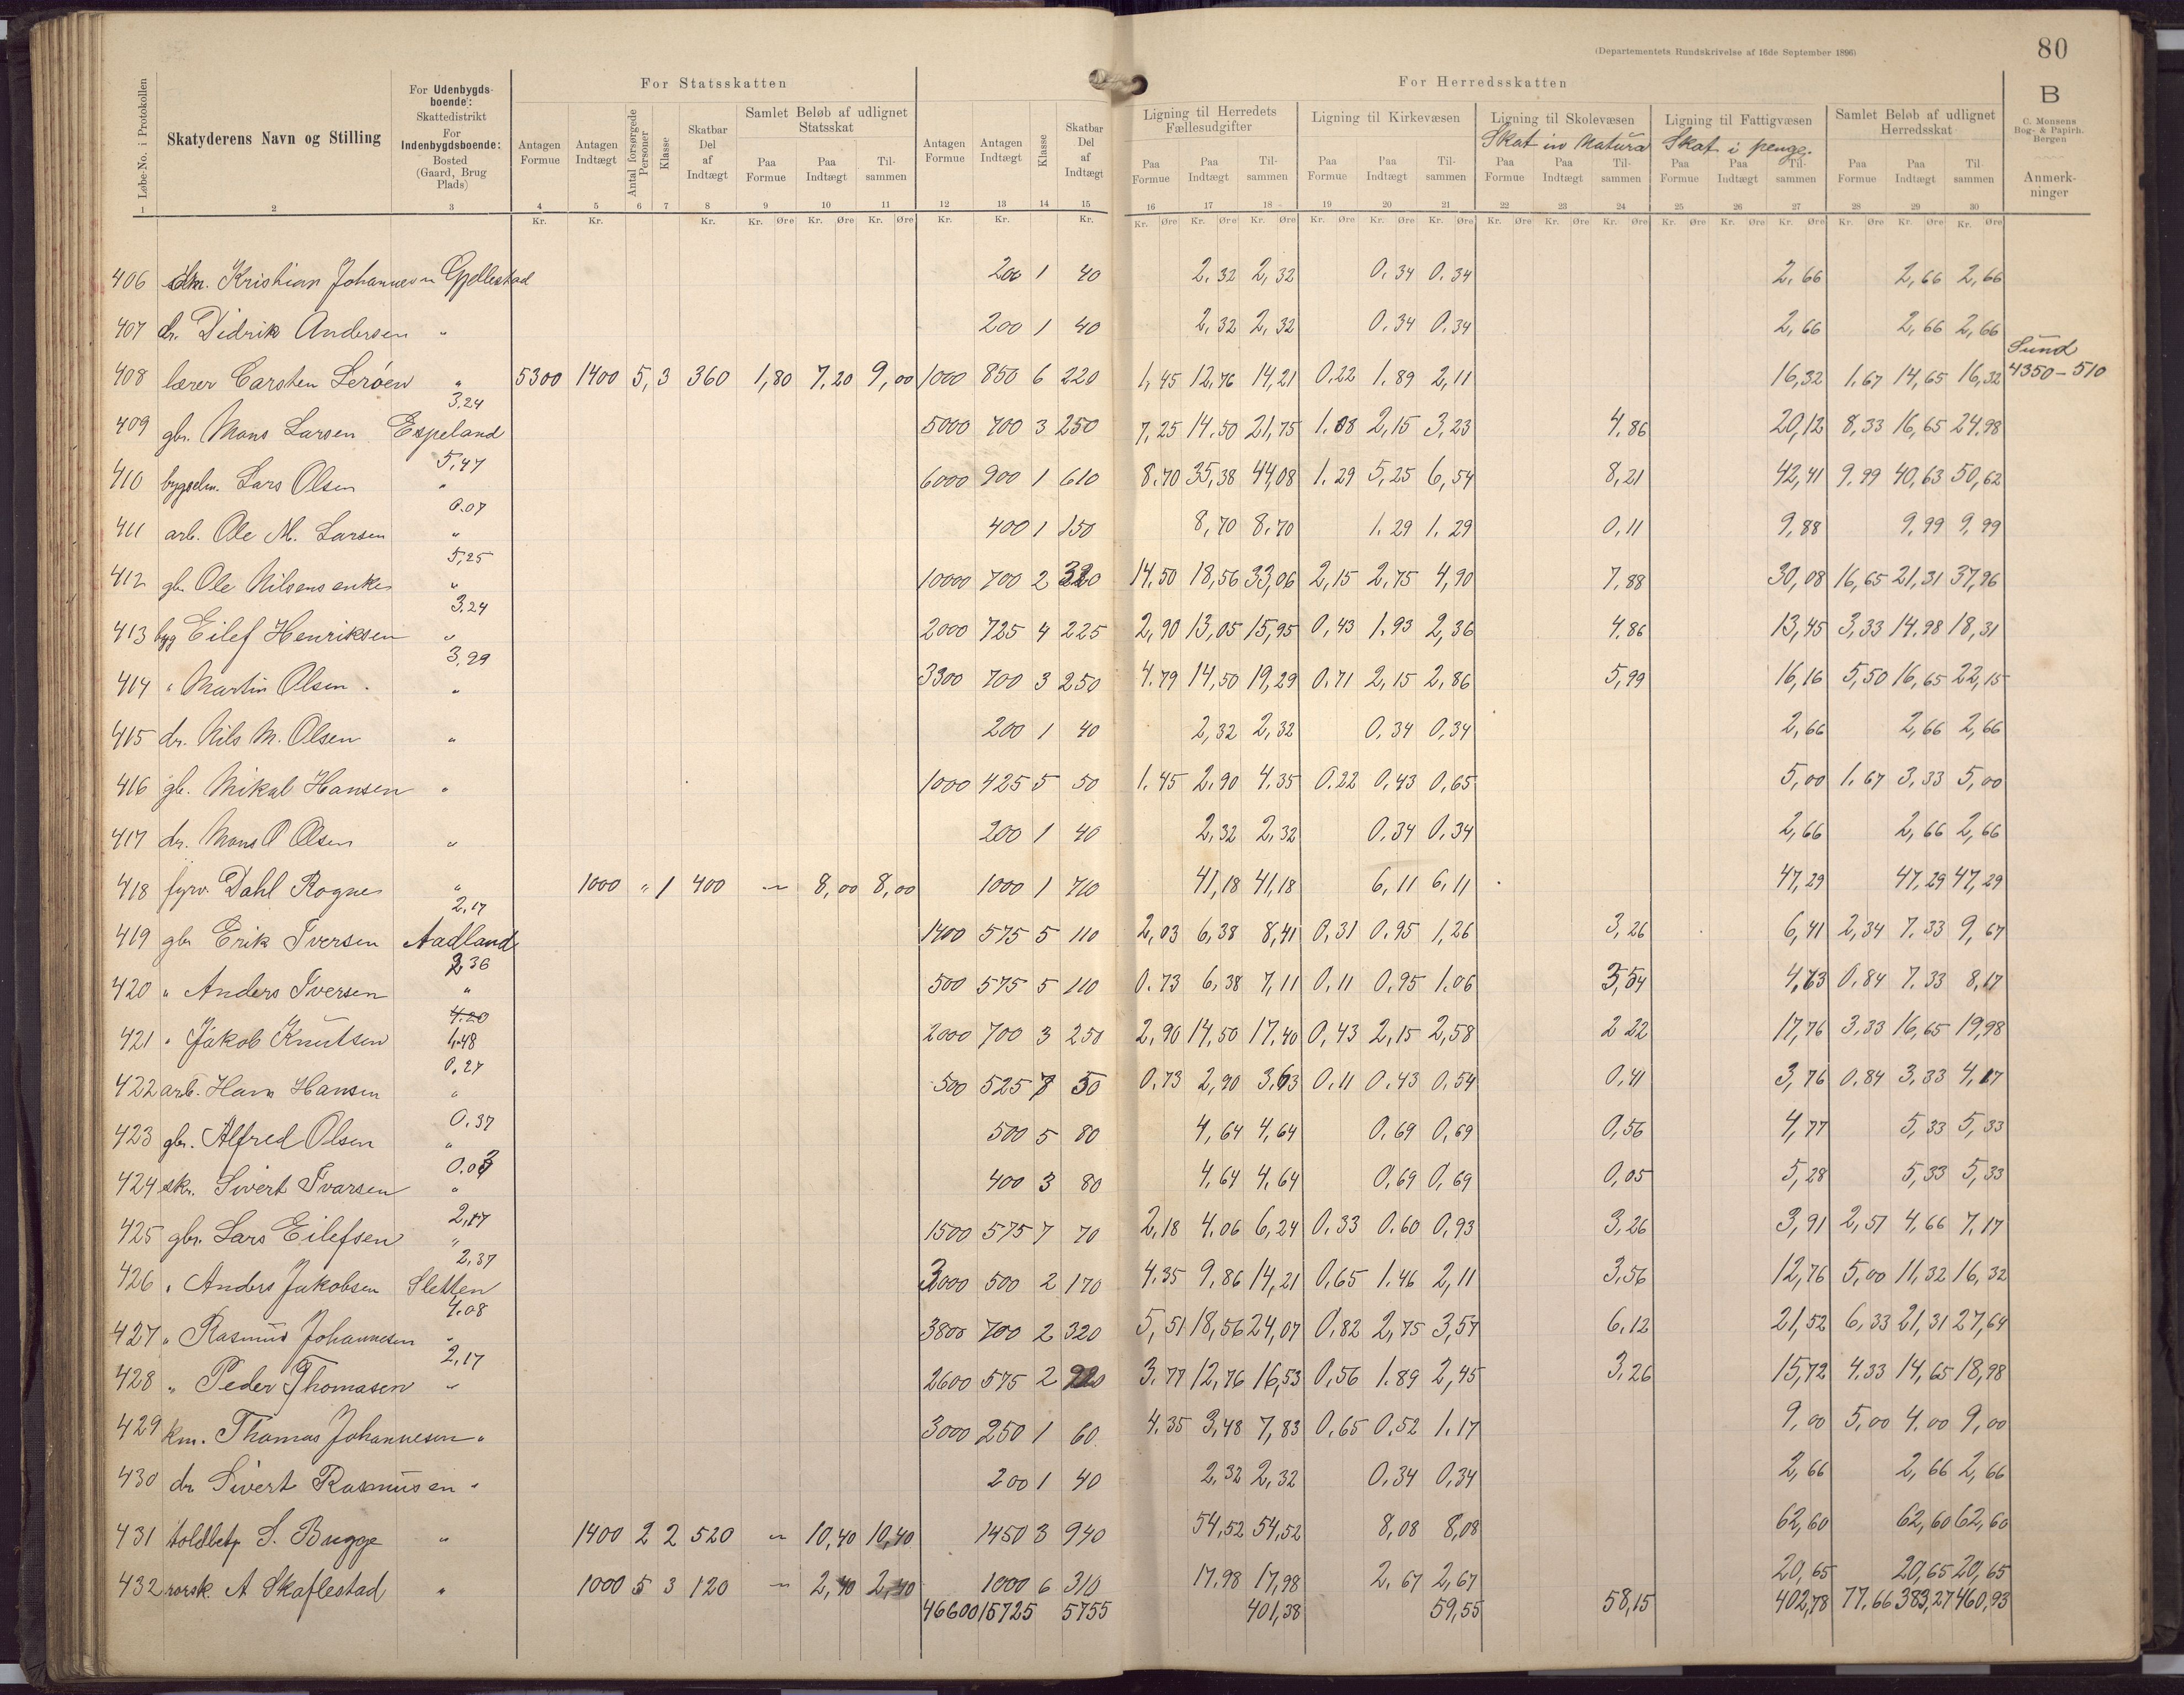 (Departementets Rundskrivelse af 16de September 1896)
80
B
C. Monsens Bog- & Papirh. Bergen
For Statsskatten
For Herredsskatten
Løbe-No. i Protokollen
Skatyderens Navn og Stilling
For Udenbygdsboende: Skattedistrikt For Indenbygdsboende: Bosted (Gaard, Brug Plads)
Antagen Formue
Antagen Indtægt
Antal forsørgede Personer
Klasse
Skatbar Del af Indtægt
Samlet Beløb af udlignet Statsskat
Paa Formue Paa Indtægt Tilsammen
Antagen Formue
Antagen Indtægt
Klasse
Skatbar Del af Indtægt
Ligning til Herredets Fællesudgifter
Paa Formue Paa Indtægt Tilsammen
Ligning til Kirkevæsen
Paa Formue Paa Indtægt Tilsammen
Ligning til Skolevæsen
Skat in Natura
Paa Formue Paa Indtægt Tilsammen
Ligning til Fattigvæsen
Skat i penge.
Paa Formue Paa Indtægt Tilsammen
Samlet Beløb af udlignet Herredsskat
Paa Formue Paa Indtægt Tilsammen
Anmerkninger
1 2 3 4 5 6 7 8 9 10 11 12 13 14 15 16 17 18 19 20 21 22 23 24 25 26 27 28 29 30
406 Kristian Johannesen Gjellestad 200 1 40 2,32 2,32 0.34 0.34 2.66 2,66 2,66
407 dr. Didrik Andersen " 200 1 40 2,32 2,32 0.34 0.34 2,66 2,66 2,66
Sund
408 lærer Carsten Lerøen " 5300 1400 5, 3 360 1,80 7,20 9,00 1000 850 6 220 1,45 12,76 14,21 0,22 1.89 2,11 16,32 1.67 14,65 16,32 4350-510
3.24
409 gbr. Mons Larsen Espeland 5000 700 3 250 7,25 14.50 21,75 1.08 2,15 3,23 4,86 20,12 8,33 16,65 24,98
5,47
410 bygselm. Lars Olsen " 6000 900 1 610 8.70 35,38 44,08 1.29 5,25 6,54 8,21 42,41 9.99 40,63 50,62
0.07
411 arb. Ole M. Larsen " 400 1 150 8,70 8.70 1.29 1.29 0,11 9,88 9,99 9,99
5,25
412 gb. Ole Nilsens enke " 10000 700 2 320 14,50 18,56 33,06 2,15 2,75 4,90 7,88 30,08 16,65 21,31 37,96
3.24
413 byg Eilef Henriksen " 2000 725 4 225 2,90 13,05 15,95 0,43 1.93 2,36 4.86 13,45 3,33 14.98 18,31
3,99
414 " Martin Olsen " 3300 700 3 250 4.79 14,50 19,29 0.71 2,15 2,86 5,99 16,16 5,50 16,65 22,15
415 dr. Nils M. Olsen " 200 1 40 2,32 2,32 0.34 0,34 2,66 2,66 2,66
416 gb. Mikal Hansen " 1000 425 5 50 1.45 2.90 4.35 0.22 0,43 0,65 5,00 1.67 3,33 5,00
417 dr. Mons O Olsen " 200 1 40 2,32 2,32 0.34 0.34 2,66 2,66 2,66
418 fyrv. Dahl Rognes " 1000 " 1 400 " 8,00 8,00 1000 1 710 41,18 41,18 6,11 6,11 47,29 47,29 47,29
2,17
419 gbr Erik Iversen Aadland 1400 575 5 110 2,03 6,38 8,41 0,31 0.95 1,26 3,26 6,41 2,34 7.33 9,67
2,36
420 " Anders Iversen " 500 575 5 110 0.73 6,38 7,11 0,11 0.95 1.06 3,54 4,63 0.84 7.33 8,17
4.20
421 " Jakob Knutsen 1,48 2000 700 3 250 2,90 14,50 17,40 0,43 2,15 2,58 2 22 17,76 3.33 16,65 19,98
0.27
422 arb. Hans Hansen " 500 525 7 50 0.73 2,90 3.63 0.11 0.43 0,54 0,41 3,76 0.84 3,33 4,17
0.37
423 gbr. Alfred Olsen " 500 5 80 4,64 4,64 0.69 0,69 0,56 4,77 5,33 5,33
0.03
424 skr. Sivert Ivarsen " 400 3 80 4.64 4.64 0,69 0,69 0,05 5,28 5,33 5,33
2,17
425 gbr. Lars Eilefsen " 1500 575 7 70 2,18 4.06 6,24 0.33 0.60 0,93 3,26 3,91 2,51 4,66 7.17
2,37
426 " Anders Jakobsen Sletten 3000 500 2 170 4.35 9,86 14,21 0,65 1.46 2,11 3,56 12,76 5,00 11,32 16,32
4.08
427 " Rasmus Johannesen " 3800 700 2 320 5,51 18,56 24,07 0,82 2,75 3,57 6,12 21,52 6,33 21,31 27,64
2,17
428 " Peder Thomasen " 2600 575 2 220 3.77 12,76 16,53 0,56 1.89 2,45 3,26 15,72 4.33 14,65 18,98
429 km. Thomas Johannesen " 3000 250 1 60 4.35 3,48 7,83 0,65 0.52 1.17 9,00 5,00 4.00 9,00
430 dr Sivert Rasmusen " 200 1 40 2,32 2,32 0,34 0,34 2,66 2,66 2,66
431 toldbetj S. Bugge " 1400 2 2 520 " 10,40 10,40 1450 3 940 54,52 54,52 8,08 8,08 62,60 62,60 62,60
432 A Skaflestad " 1000 5 3 120 " 2,40 2,40 1000 6 310 17.98 17,98 2,67 2,67 20,65 20,65 20,65
46600 15725 5755 401,38 59,55 58,15 402,78 77.66 383,27 460,93